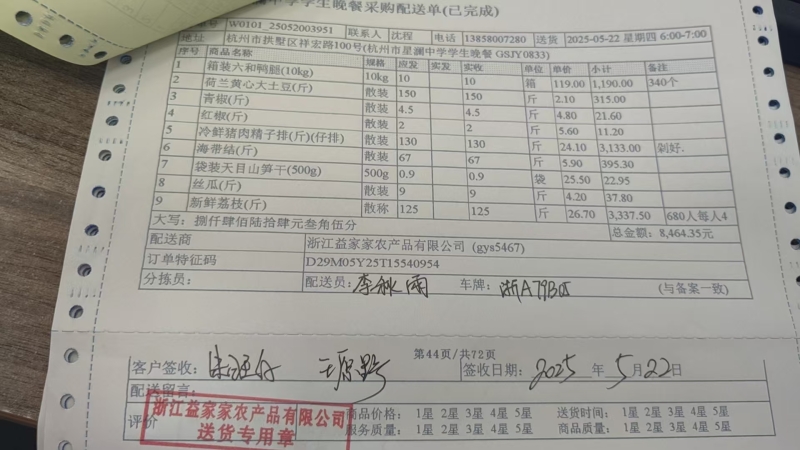 中学学生晚餐采购配送单(已完成)
号 W0101_25052003951 联系人 沈程 电话 13858007280 送货 2025-05-22 星期四 6:00-7:00
地址 杭州市拱墅区祥宏路100号(杭州市星澜中学学生晚餐 GSJY0833)
序号 商品名称 规格 应发 实发 实收 单位 单价 小计 备注
1 箱装六和鸭腿(10kg) 10kg 10 10 箱 119.00 1,190.00 340个
2 荷兰黄心大土豆(斤) 散装 150 150 斤 2.10 315.00
3 青椒(斤) 散装 4.5 4.5 斤 4.80 21.60
4 红椒(斤) 散装 2 2 斤 5.60 11.20
5 冷鲜猪肉精子排(斤)(仔排) 散装 130 130 斤 24.10 3,133.00 剁好.
6 海带结(斤) 散装 67 67 斤 5.90 395.30
7 袋装天目山笋干(500g) 500g 0.9 0.9 袋 25.50 22.95
8 丝瓜(斤) 散装 9 9 斤 4.20 37.80
9 新鲜荔枝(斤) 散称 125 125 斤 26.70 3,337.50 680人每人4
大写: 捌仟肆佰陆拾肆元叁角伍分 总金额: 8,464.35元
配送商 浙江益家家农产品有限公司 (gys5467)
订单特征码 D29M05Y25T15540954
分拣员: 配送员: 李秋雨 车牌: 浙A79B (与备案一致)
第44页/共72页
客户签收: 签收日期: 2025 年 5月22日
配送留言:
评价 商品价格: 1星 2星 3星 4星 5星 送货时间: 1星 2星 3星 4星 5星
服务质量: 1星 2星 3星 4星 5星 商品质量: 1星 2星 3星 4星 5星
浙江益家家农产品有限公司
送货专用章